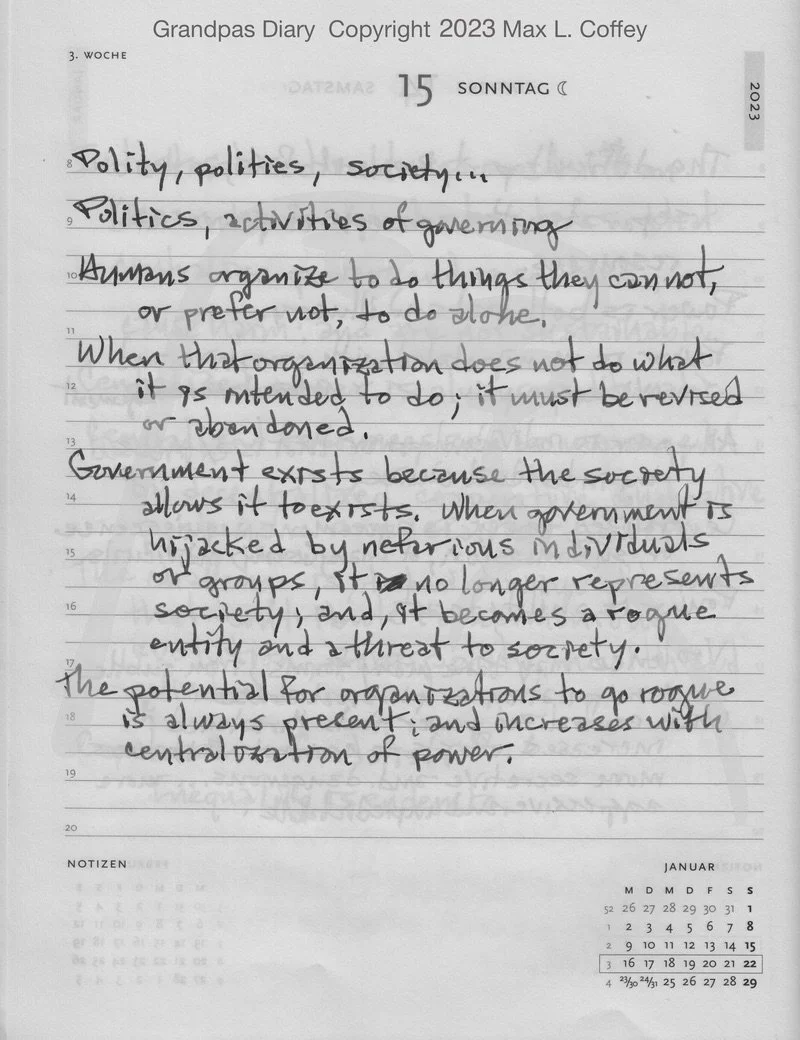 Grandpas Diary Copyright 2023 Max L. Coffey
3. WOCHE
15 SONNTAG ☾
2023
8 Polity, polities, society...
9 Politics, activities of governing
10 Humans organize to do things they cannot,
or prefer not, to do alone.
11
When that organization does not do what
12 it is intended to do; it must be revised
or abandoned.
13
Government exists because the society
14 allows it to exists. When government is
hijacked by nefarious individuals
15
or groups, it no longer represents
16 society; and, it becomes a rogue
entity and a threat to society.
17
The potential for organizations to go rogue
18 is always present; and increases with
centralization of power.
19
20
NOTIZEN
JANUAR
M D M D F S S
52 26 27 28 29 30 31 1
1 2 3 4 5 6 7 8
2 9 10 11 12 13 14 15
3 16 17 18 19 20 21 22
4 23/30 24/31 25 26 27 28 29